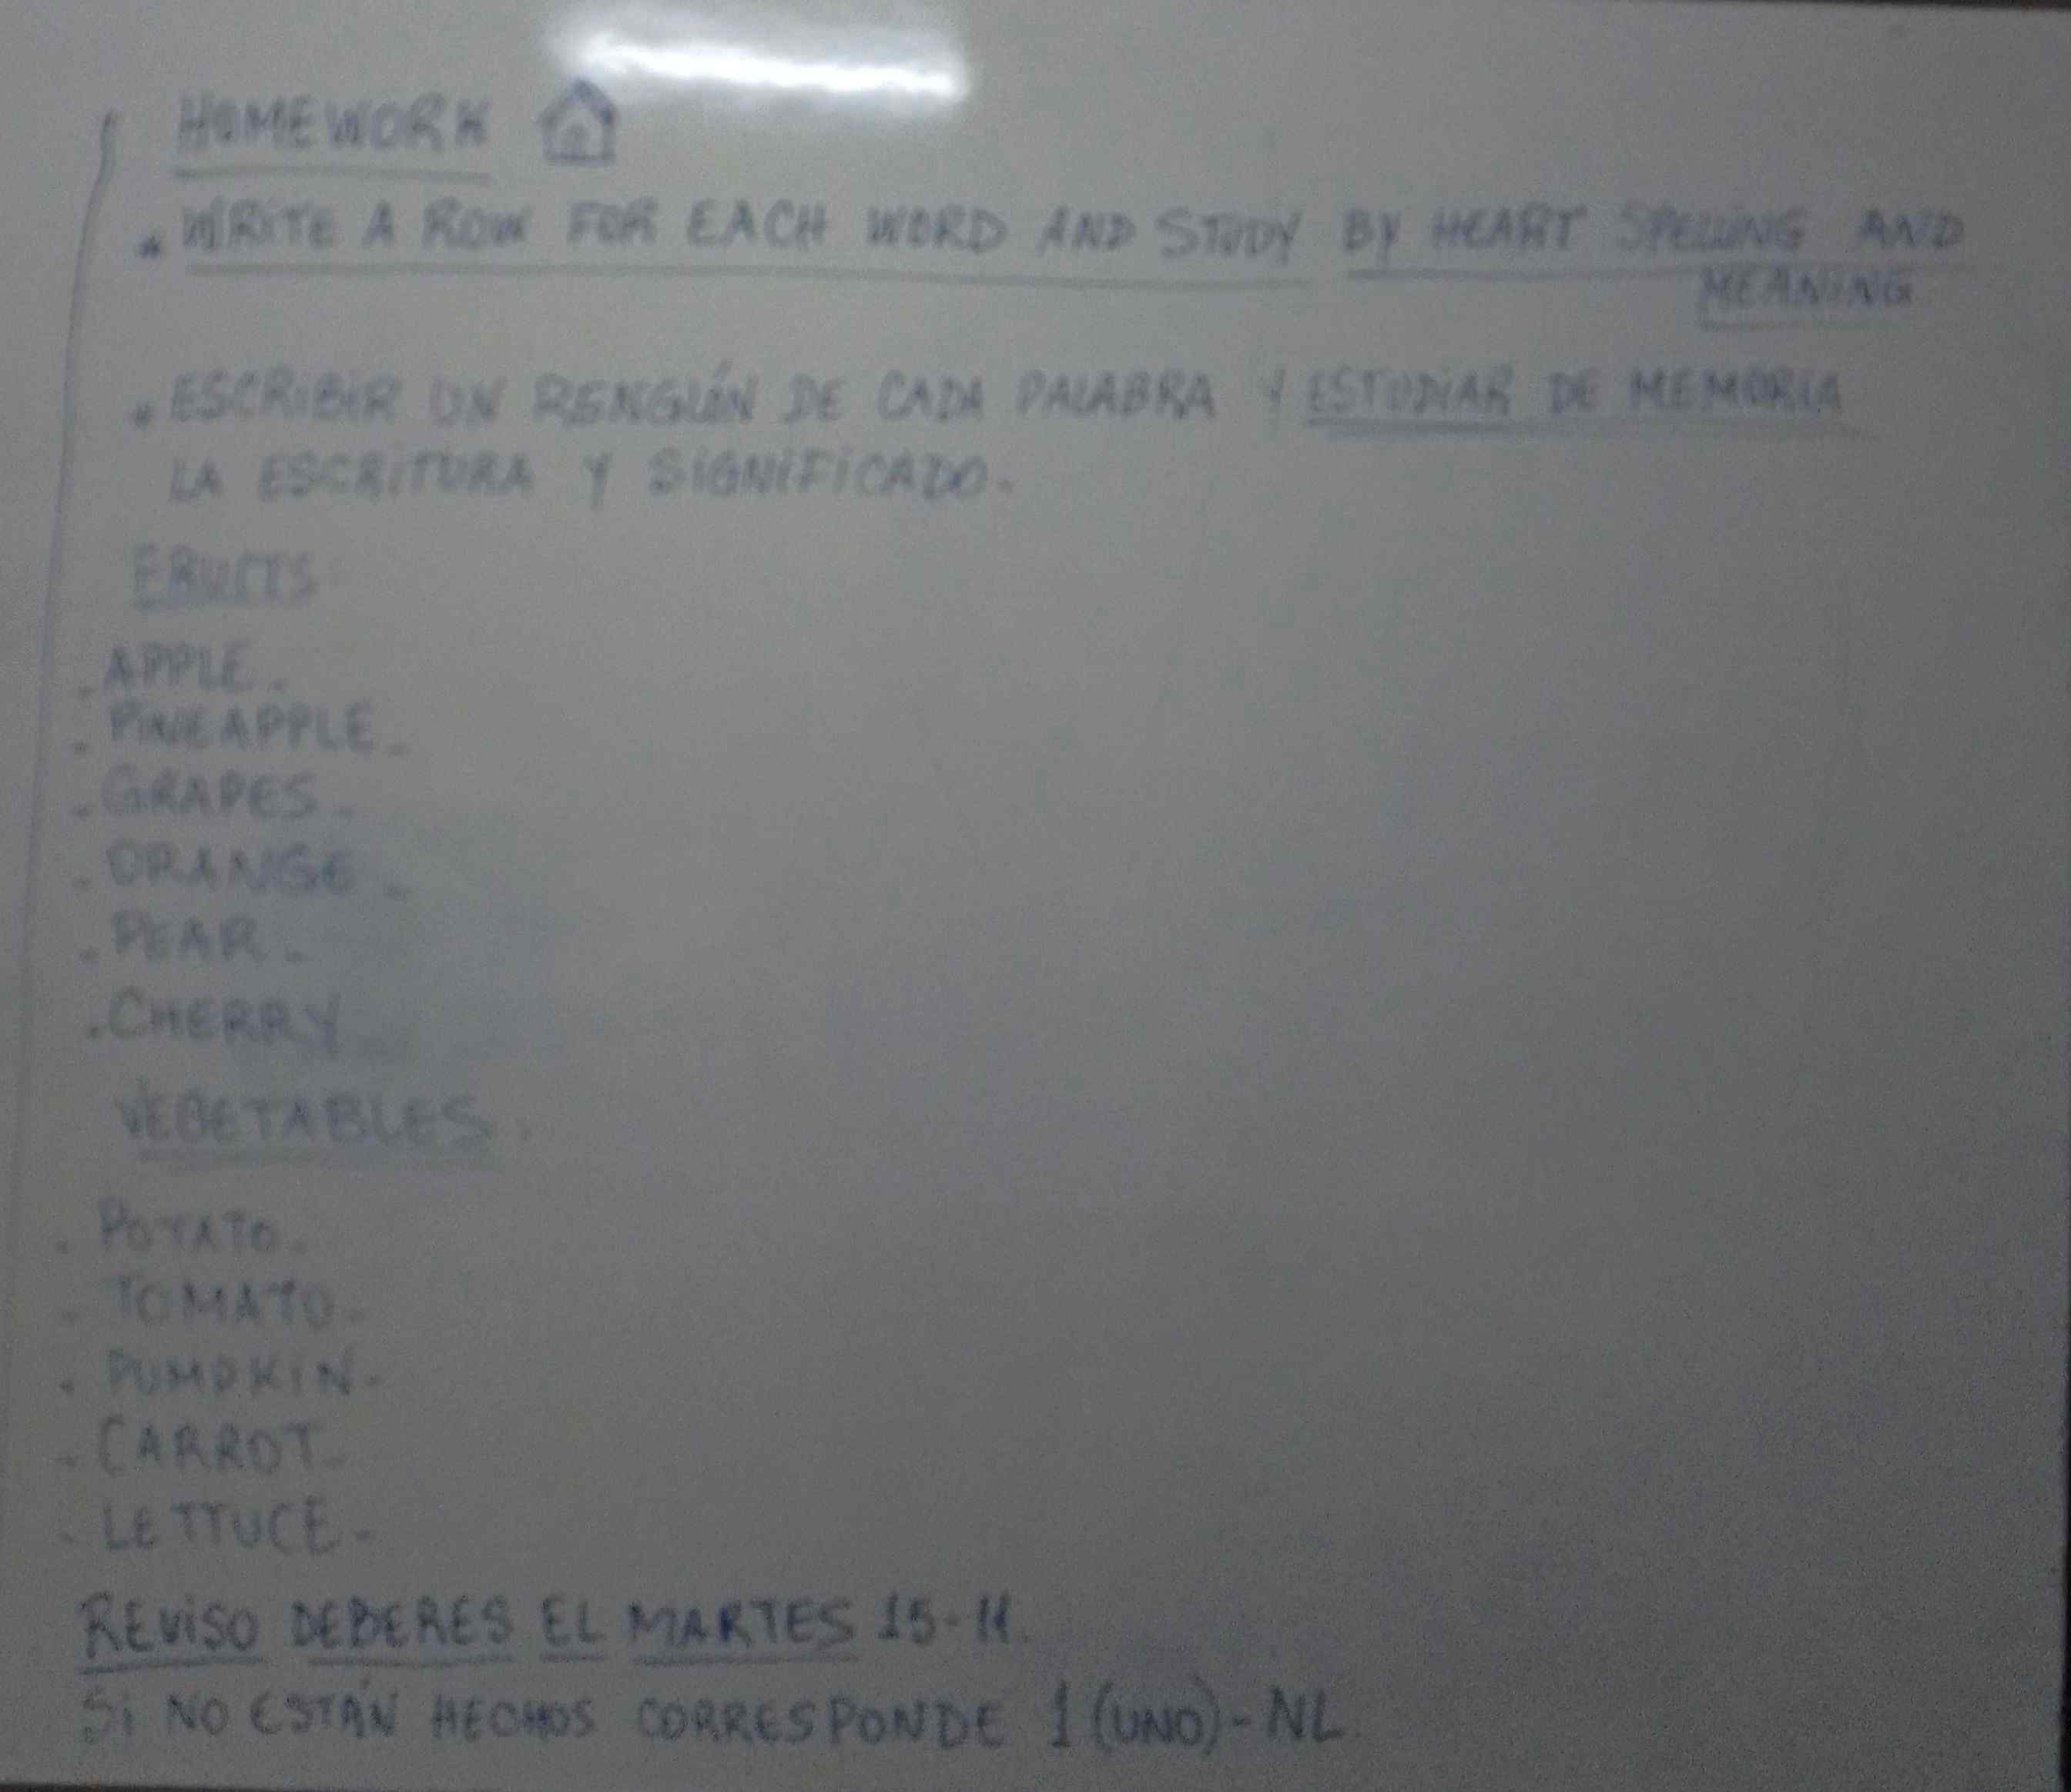 HOMEWORK
* WRITE A ROW FOR EACH WORD AND STUDY BY HEART SPELLING AND
MEANING
* ESCRIBIR UN RENGLÓN DE CADA PALABRA Y ESTUDIAR DE MEMORIA
LA ESCRITURA Y SIGNIFICADO.
FRUITS
- APPLE -
- PINEAPPLE -
- GRAPES -
- ORANGE -
- PEAR -
- CHERRY -
VEGETABLES.
- POTATO -
- TOMATO -
- PUMPKIN -
- CARROT -
- LETTUCE -
REVISO DEBERES EL MARTES 15-11.
SI NO ESTÁN HECHOS CORRESPONDE 1 (UNO) - NL